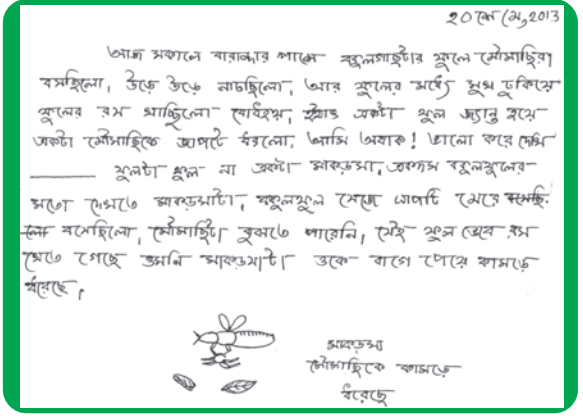 ২০শে মে, 2013
আজ সকালে বারান্দার পাশে বকুলগাছটার ফুলে মৌমাছিরা
বসছিলো, উড়ে উড়ে নাচছিলো, আর ফুলের মধ্যে মুখ ঢুকিয়ে
ফুলের রস খাচ্ছিলো বোধহয়, হঠাৎ একটা ফুল জ্যান্ত হয়ে
একটা মৌমাছিকে জাপটে ধরলো, আমি অবাক! ভালো করে দেখি
ফুলটা ফুল না একটা মাকড়সা, একদম বকুলফুলের
মতো দেখতে মাকড়সাটা, বকুলফুল সেজে ঘাপটি মেরে
বসেছিলো, মৌমাছিটা বুঝতে পারেনি, যেই ফুল ভেবে রস
খেতে গেছে অমনি মাকড়সাটা ওকে বাগে পেয়ে কামড়ে
ধরেছে,
মাকড়সা
মৌমাছিকে কামড়ে
ধরেছে